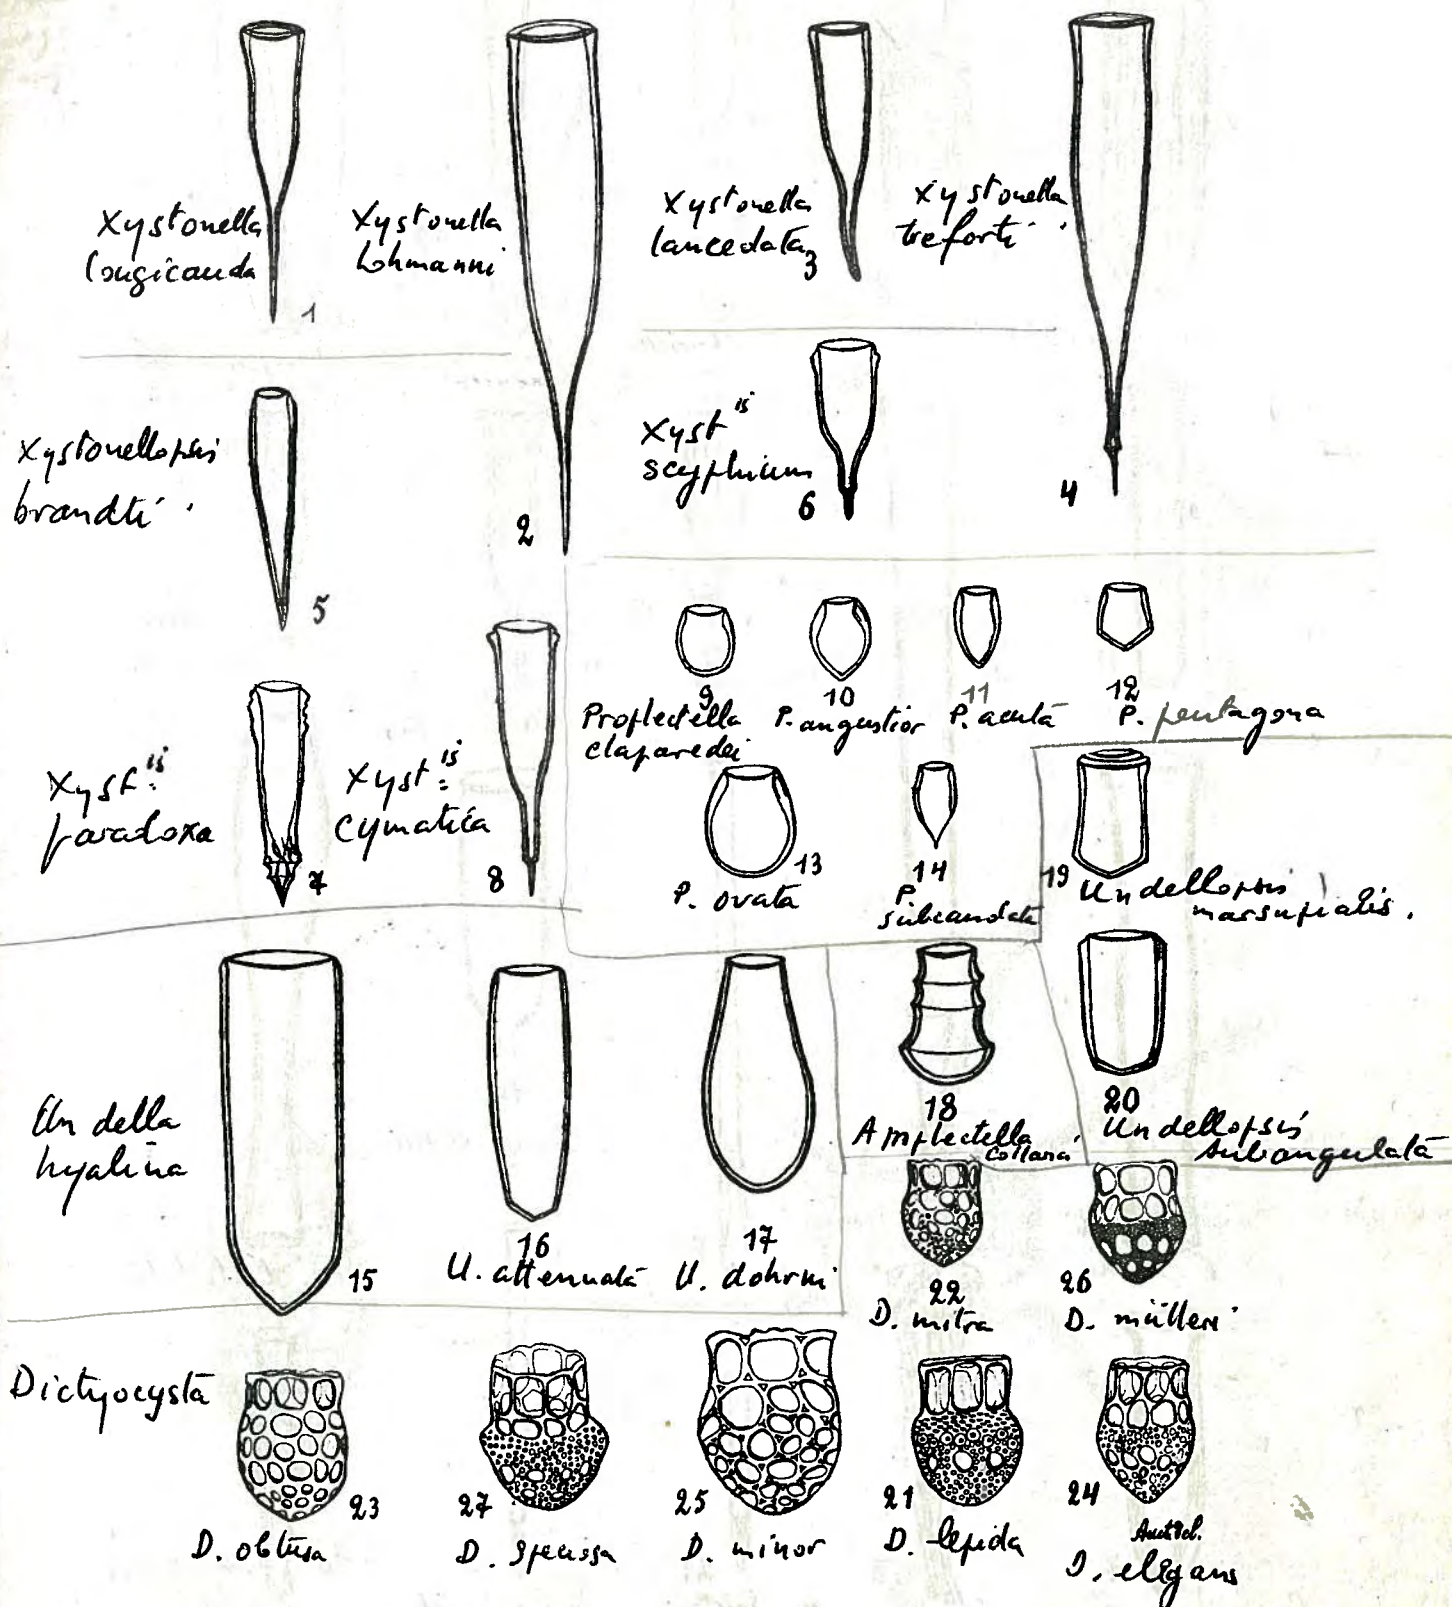 Xystonella
longicauda
1
Xystonella
Lohmanni
2
Xystonella
lanceolata
3
Xystonella
treforti
4
Xystonellopsis
brandti
5
Xyst is
scyphium
6
Xyst. is
paradoxa
7
Xyst. is
cymatica
8
9
Proplectella
claparedei
10
P. angustior
11
P. acuta
12
P. pentagona
13
P. ovata
14
P.
subcaudata
19
Undellopsis
marsupialis.
Undella
hyalina
15
16
U. attenuata
17
U. dohrni
18
Amplectella
collaria
20
Undellopsis
subangulata
22
D. mitra
26
D. mülleri
Dictyocysta
23
D. obtusa
27
D. speciosa
25
D. minor
21
D. lepida
24
D. elegans